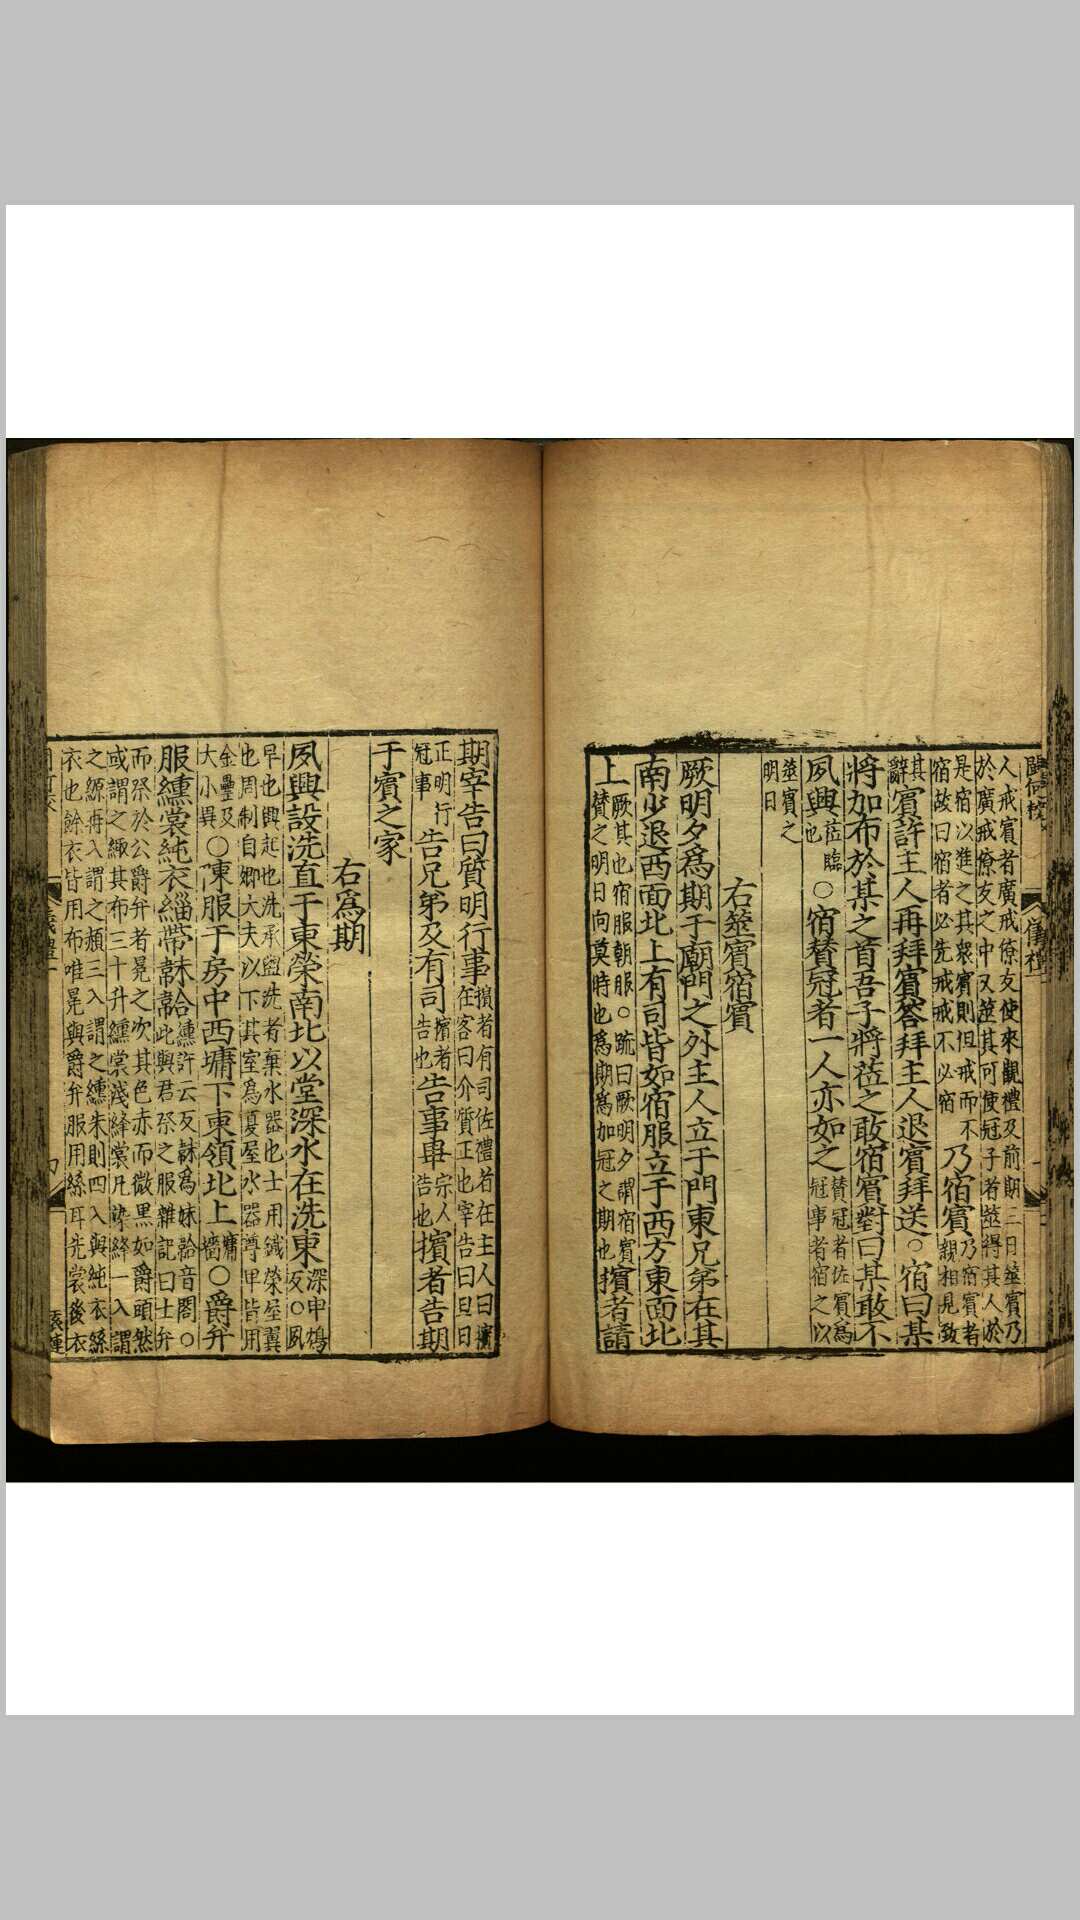 人戒賓者廣戒僚友使來觀禮及前期三日筮賓乃
於廣戒僚友之中又筮其可使冠子者筮得其人於
是宿以進之其衆賓則但戒而不
宿故曰宿者必先戒戒不必宿
乃宿賓
乃宿賓者
親相見致
其
辭
賓許主人再拜賓答拜主人退賓拜送○宿曰某
將加布於某之首吾子將莅之敢宿賓對曰某敢不
夙興
莅臨
也
○宿贊冠者一人亦如之
贊冠者佐賓爲
冠事者宿之以
筮賓之
明日
右筮賓宿賓
厥明夕爲期于廟門之外主人立于門東兄弟在其
南少退西面北上有司皆如宿服立于西方東面北
上
厥其也宿服朝服○疏曰厥明夕謂宿賓
贊之明日向莫時也爲期爲加冠之期也
擯者請
期宰告曰質明行事
擯者有司佐禮者在主人曰擯
在客曰介質正也宰告曰旦日
正明行
冠事
告兄弟及有司
擯者
告也
告事畢
宗人
告也
擯者告期
于賓之家
右爲期
夙興設洗直于東榮南北以堂深水在洗東
深申鴆
反○夙
早也興起也洗承盥洗者棄水器也士用鐵榮屋翼
也周制自卿大夫以下其室爲夏屋水器尊卑皆用
金罍及
大小異
○陳服于房中西墉下東領北上
墉
牆
○爵弁
服纁裳純衣緇帶韎韐
纁許云反韎爲妹韐音閤○
此與君祭之服雜記曰士弁
而祭於公爵弁者冕之次其色赤而微黑如爵頭然
或謂之緅其布三十升纁裳淺絳裳凡染絳一入謂
之縓再入謂之赬三入謂之纁朱則四入與純衣絲
衣也餘衣皆用布唯冕與爵弁服用絲耳先裳後衣
儀禮一